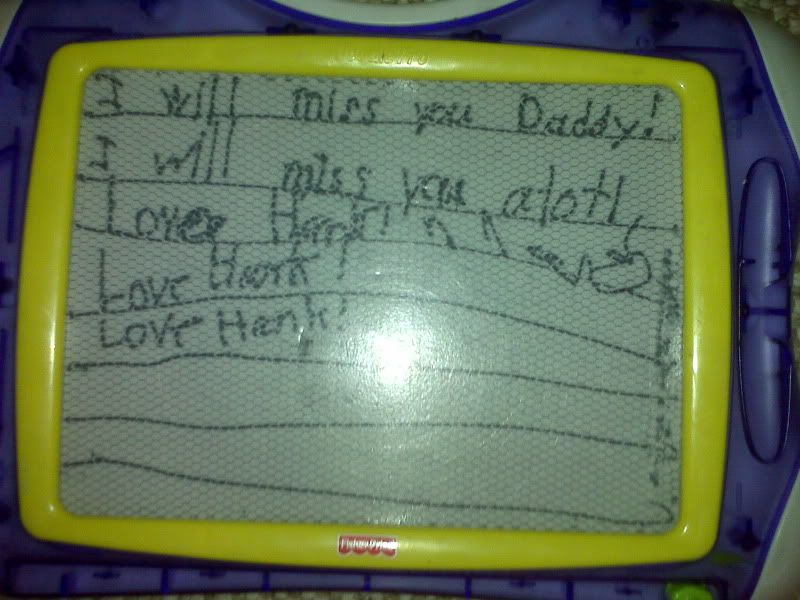 I will miss you Daddy!
I will miss you alot!
Love Hank!
Love Hank!
Love Hank!
Fisher-Price